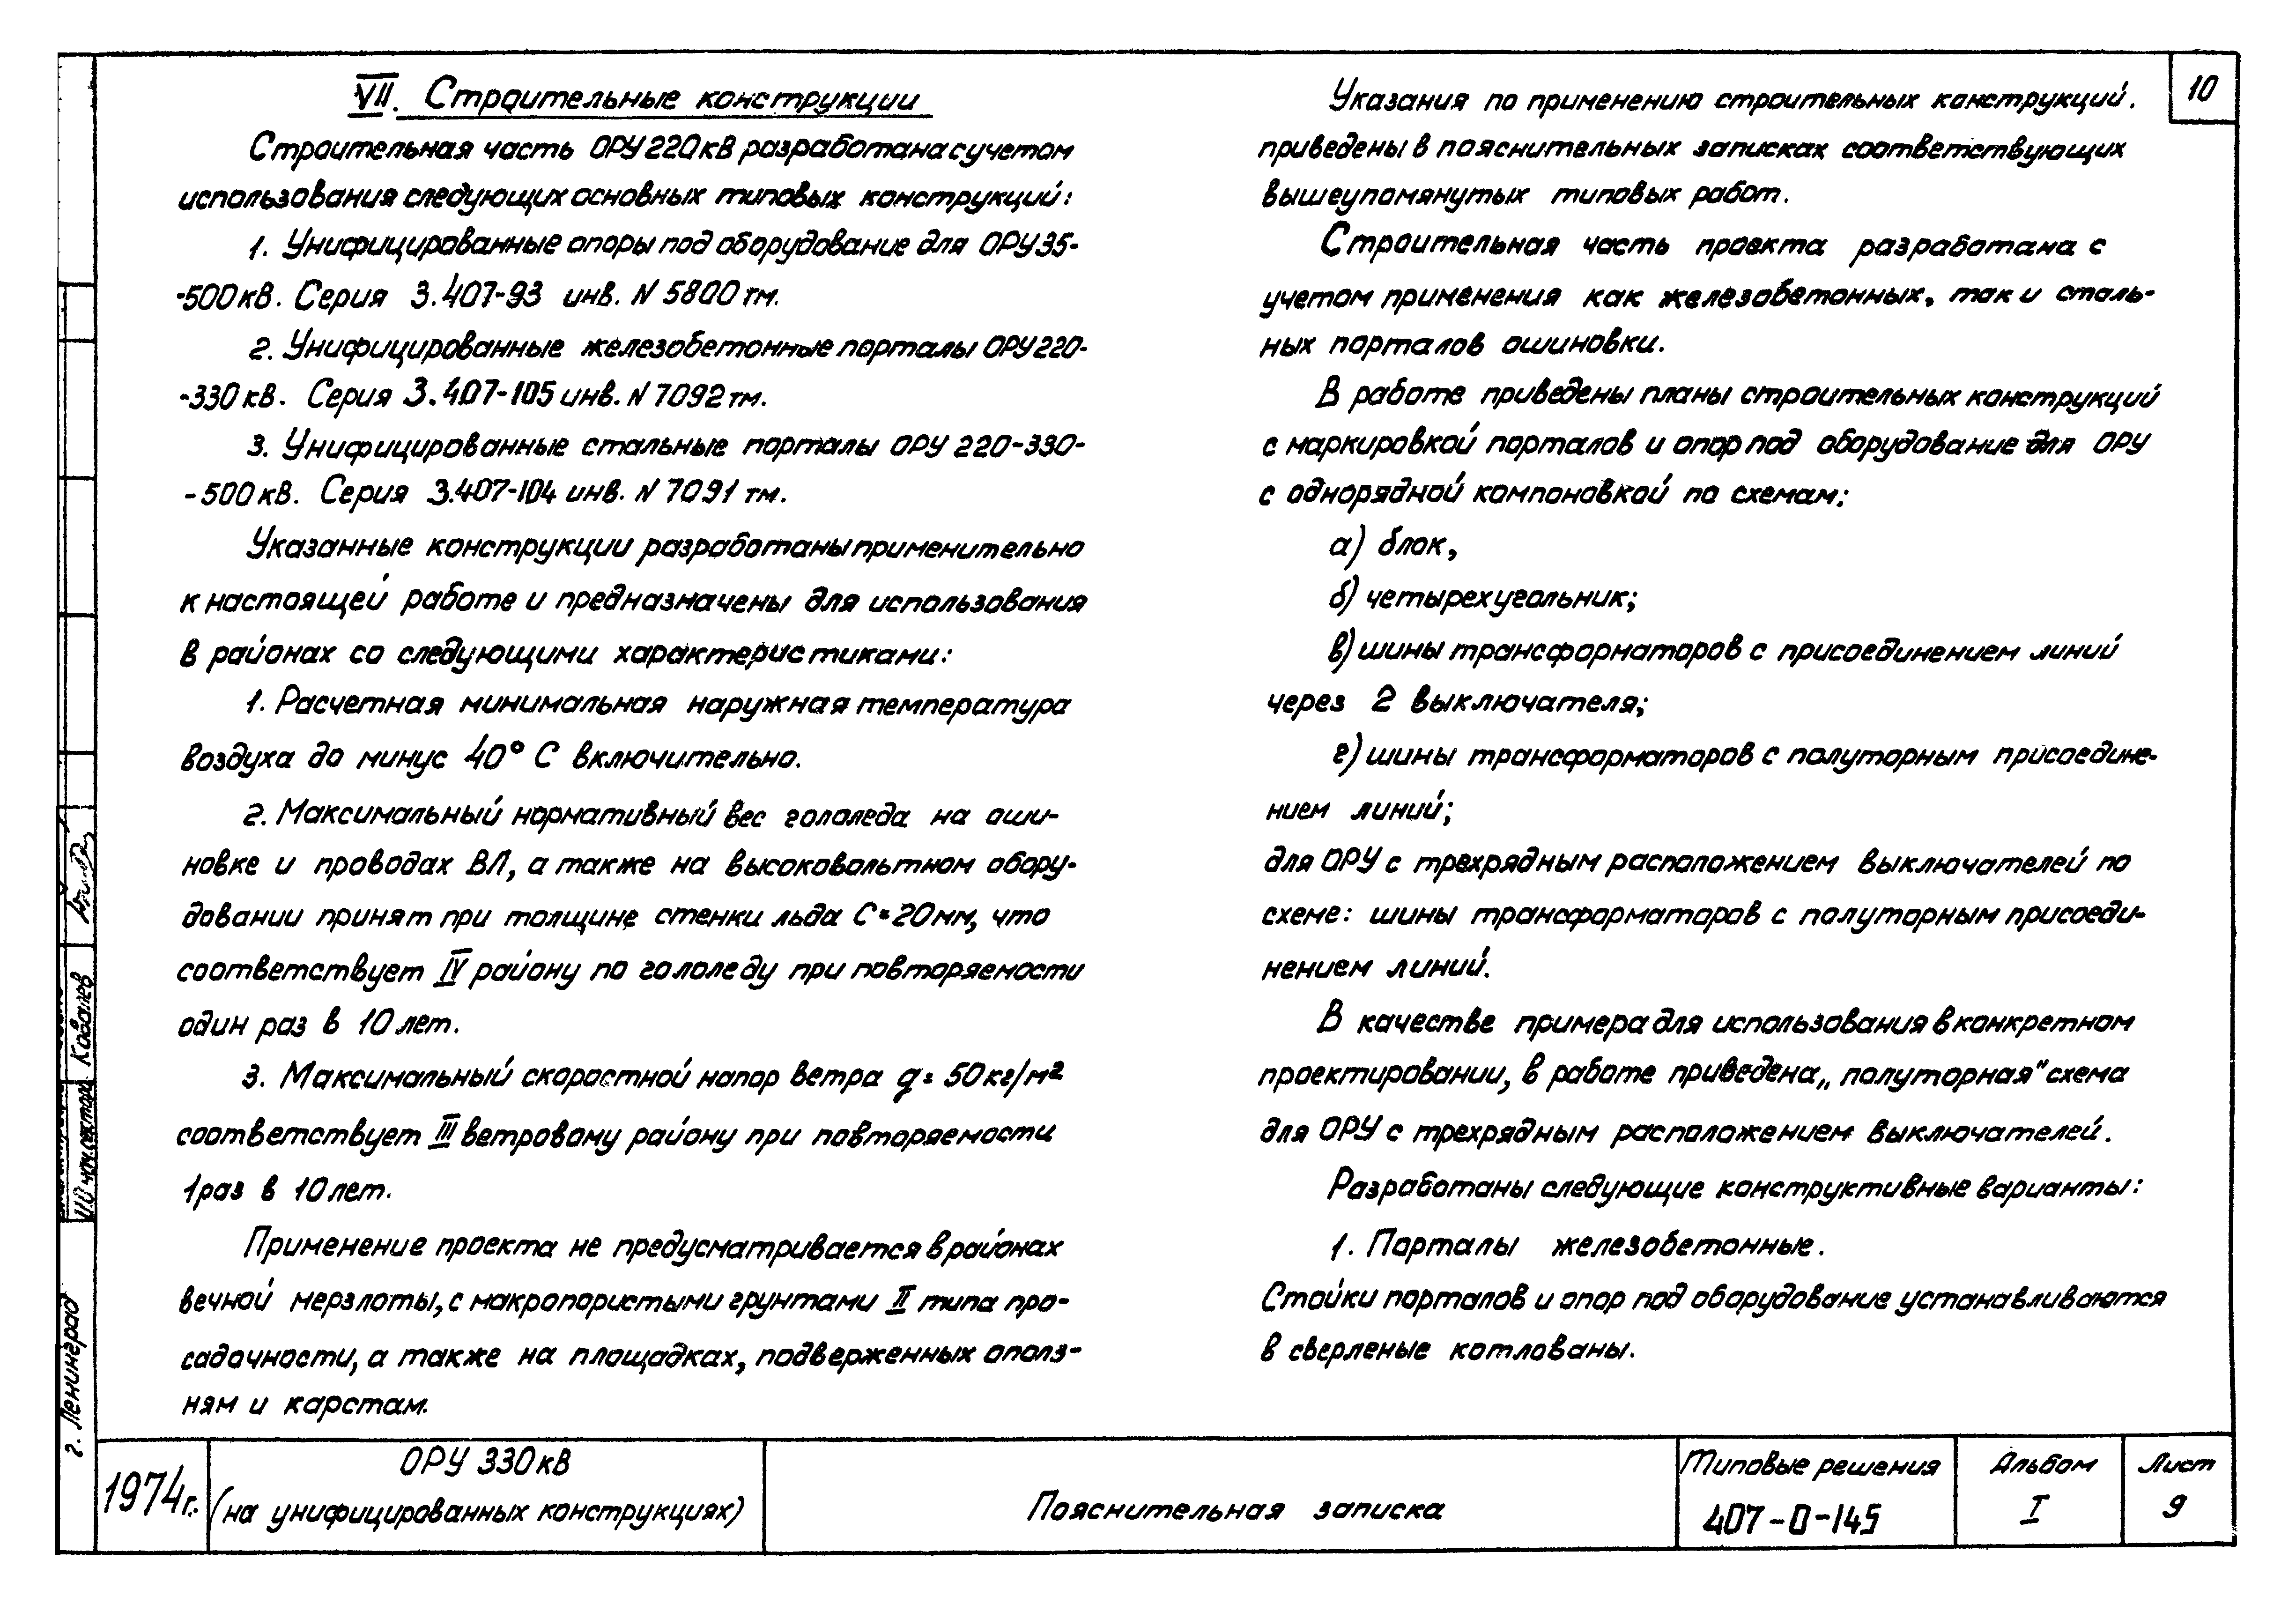 VII. Строительные конструкции
Строительная часть ОРУ 220 кВ разработана с учетом
использования следующих основных типовых конструкций:
1. Унифицированные опоры под оборудование для ОРУ 35-
-500 кВ. Серия 3.407-93 инв. N 5800 тм.
2. Унифицированные железобетонные порталы ОРУ 220-
-330 кВ. Серия 3.407-105 инв. N 7092 тм.
3. Унифицированные стальные порталы ОРУ 220-330-
-500 кВ. Серия 3.407-104 инв. N 7091 тм.
Указанные конструкции разработаны применительно
к настоящей работе и предназначены для использования
в районах со следующими характеристиками:
1. Расчетная минимальная наружная температура
воздуха до минус 40° С включительно.
2. Максимальный нормативный вес гололеда на оши-
новке и проводах ВЛ, а также на высоковольтном обору-
довании принят при толщине стенки льда С=20 мм, что
соответствует IV району по гололеду при повторяемости
один раз в 10 лет.
3. Максимальный скоростной напор ветра q= 50 кг/м²
соответствует III ветровому району при повторяемости
1 раз в 10 лет.
Применение проекта не предусматривается в районах
вечной мерзлоты, с макропористыми грунтами II типа про-
садочности, а также на площадках, подверженных ополз-
ням и карстам.
Указания по применению строительных конструкций.
приведены в пояснительных записках соответствующих
вышеупомянутых типовых работ.
Строительная часть проекта разработана с
учетом применения как железобетонных, так и сталь-
ных порталов ошиновки.
В работе приведены планы строительных конструкций
с маркировкой порталов и опор под оборудование для ОРУ
с однорядной компоновкой по схемам:
а) блок,
б) четырехугольник;
в) шины трансформаторов с присоединением линий
через 2 выключателя;
г) шины трансформаторов с полуторным присоедине-
нием линий;
для ОРУ с трехрядным расположением выключателей по
схеме: шины трансформаторов с полуторным присоеди-
нением линий.
В качестве примера для использования в конкретном
проектировании, в работе приведена „полуторная" схема
для ОРУ с трехрядным расположением выключателей.
Разработаны следующие конструктивные варианты:
1. Порталы железобетонные.
Стойки порталов и опор под оборудование устанавливаются
в сверленые котлованы.
10
Ковалев
нач. сектора
г. Ленинград
1974 г.
ОРУ 330 кВ
(на унифицированных конструкциях)
Пояснительная записка
Типовые решения
407-0-145
Альбом
I
Лист
9